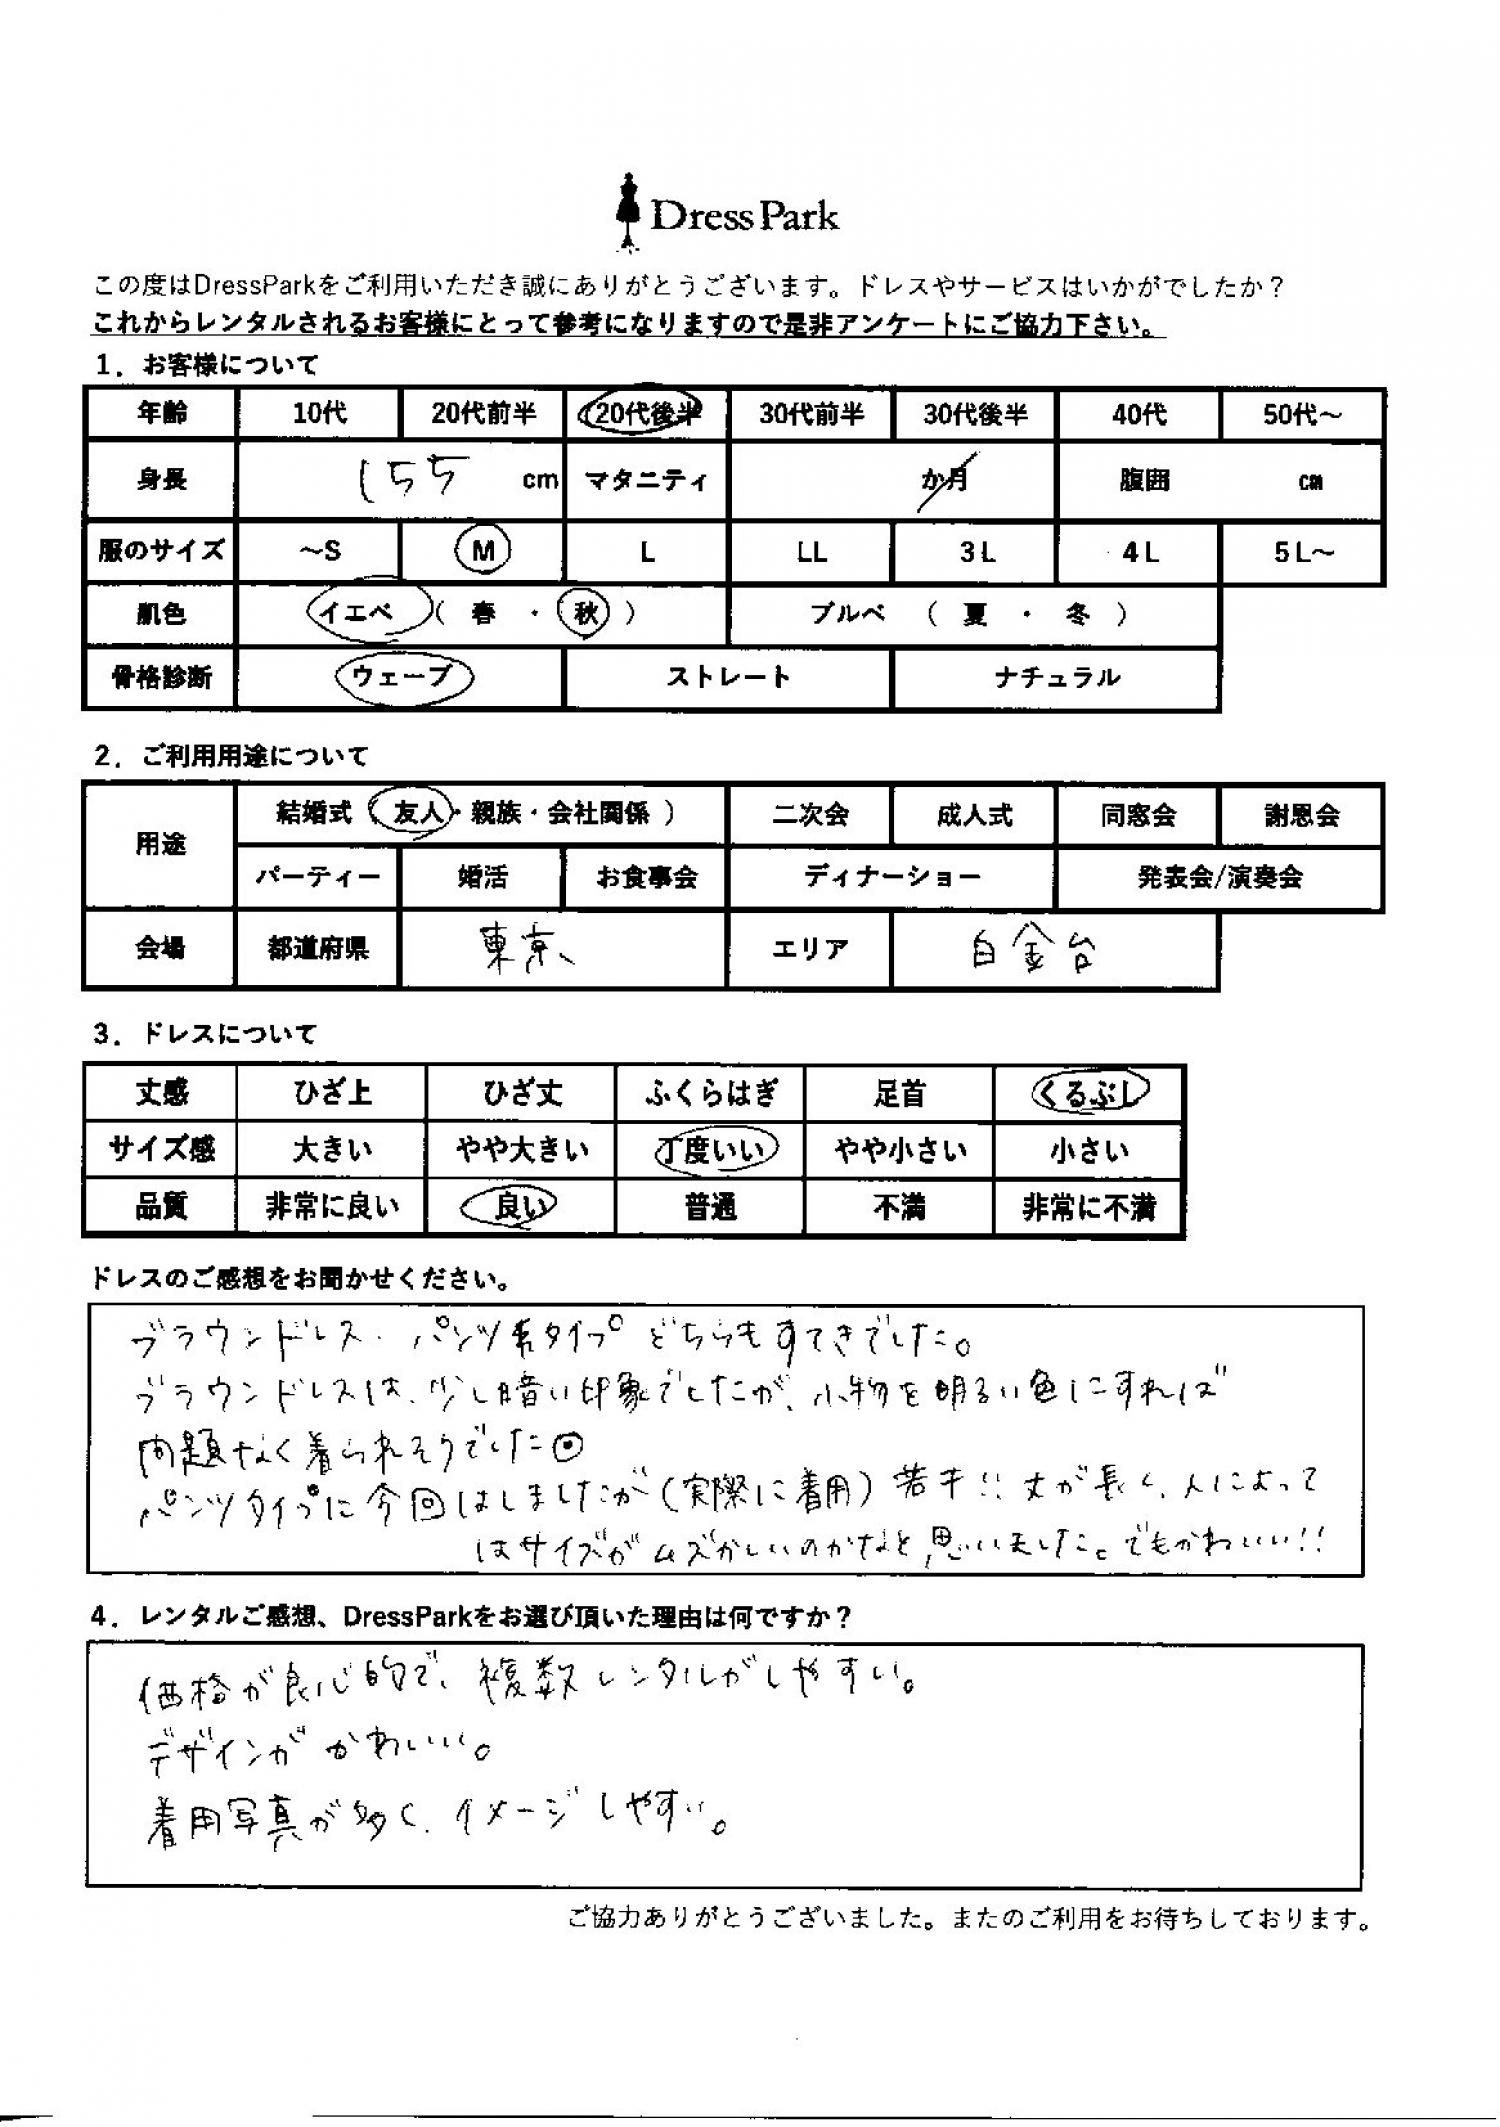 Dress Park
この度はDressParkをご利用いただき誠にありがとうございます。ドレスやサービスはいかがでしたか？
これからレンタルされるお客様にとって参考になりますので是非アンケートにご協力下さい。
1．お客様について
年齢 10代 20代前半 20代後半 30代前半 30代後半 40代 50代～
身長 155 cm マタニティ か月 腹囲 cm
服のサイズ ～S M L LL 3L 4L 5L～
肌色 イエベ（ 春 ・ 秋 ） ブルベ （ 夏 ・ 冬 ）
骨格診断 ウェーブ ストレート ナチュラル
2．ご利用用途について
用途 結婚式（ 友人・親族・会社関係 ） 二次会 成人式 同窓会 謝恩会
パーティー 婚活 お食事会 ディナーショー 発表会/演奏会
会場 都道府県 東京 エリア 白金台
3．ドレスについて
丈感 ひざ上 ひざ丈 ふくらはぎ 足首 くるぶし
サイズ感 大きい やや大きい 丁度いい やや小さい 小さい
品質 非常に良い 良い 普通 不満 非常に不満
ドレスのご感想をお聞かせください。
ブラウンドレス・パンツタイプどちらもすてきでした。
ブラウンドレスは、少し暗い印象でしたが、小物を明るい色にすれば
問題なく着られそうでした
パンツタイプに今回はしましたが(実際に着用)若干!!丈が長く、人によって
はサイズがムズかしいのかなと思いました。でもかわいい!!
4．レンタルご感想、DressParkをお選び頂いた理由は何ですか？
価格が良心的で、複数レンタルがしやすい。
デザインがかわいい。
着用写真が多く、イメージしやすい。
ご協力ありがとうございました。またのご利用をお待ちしております。